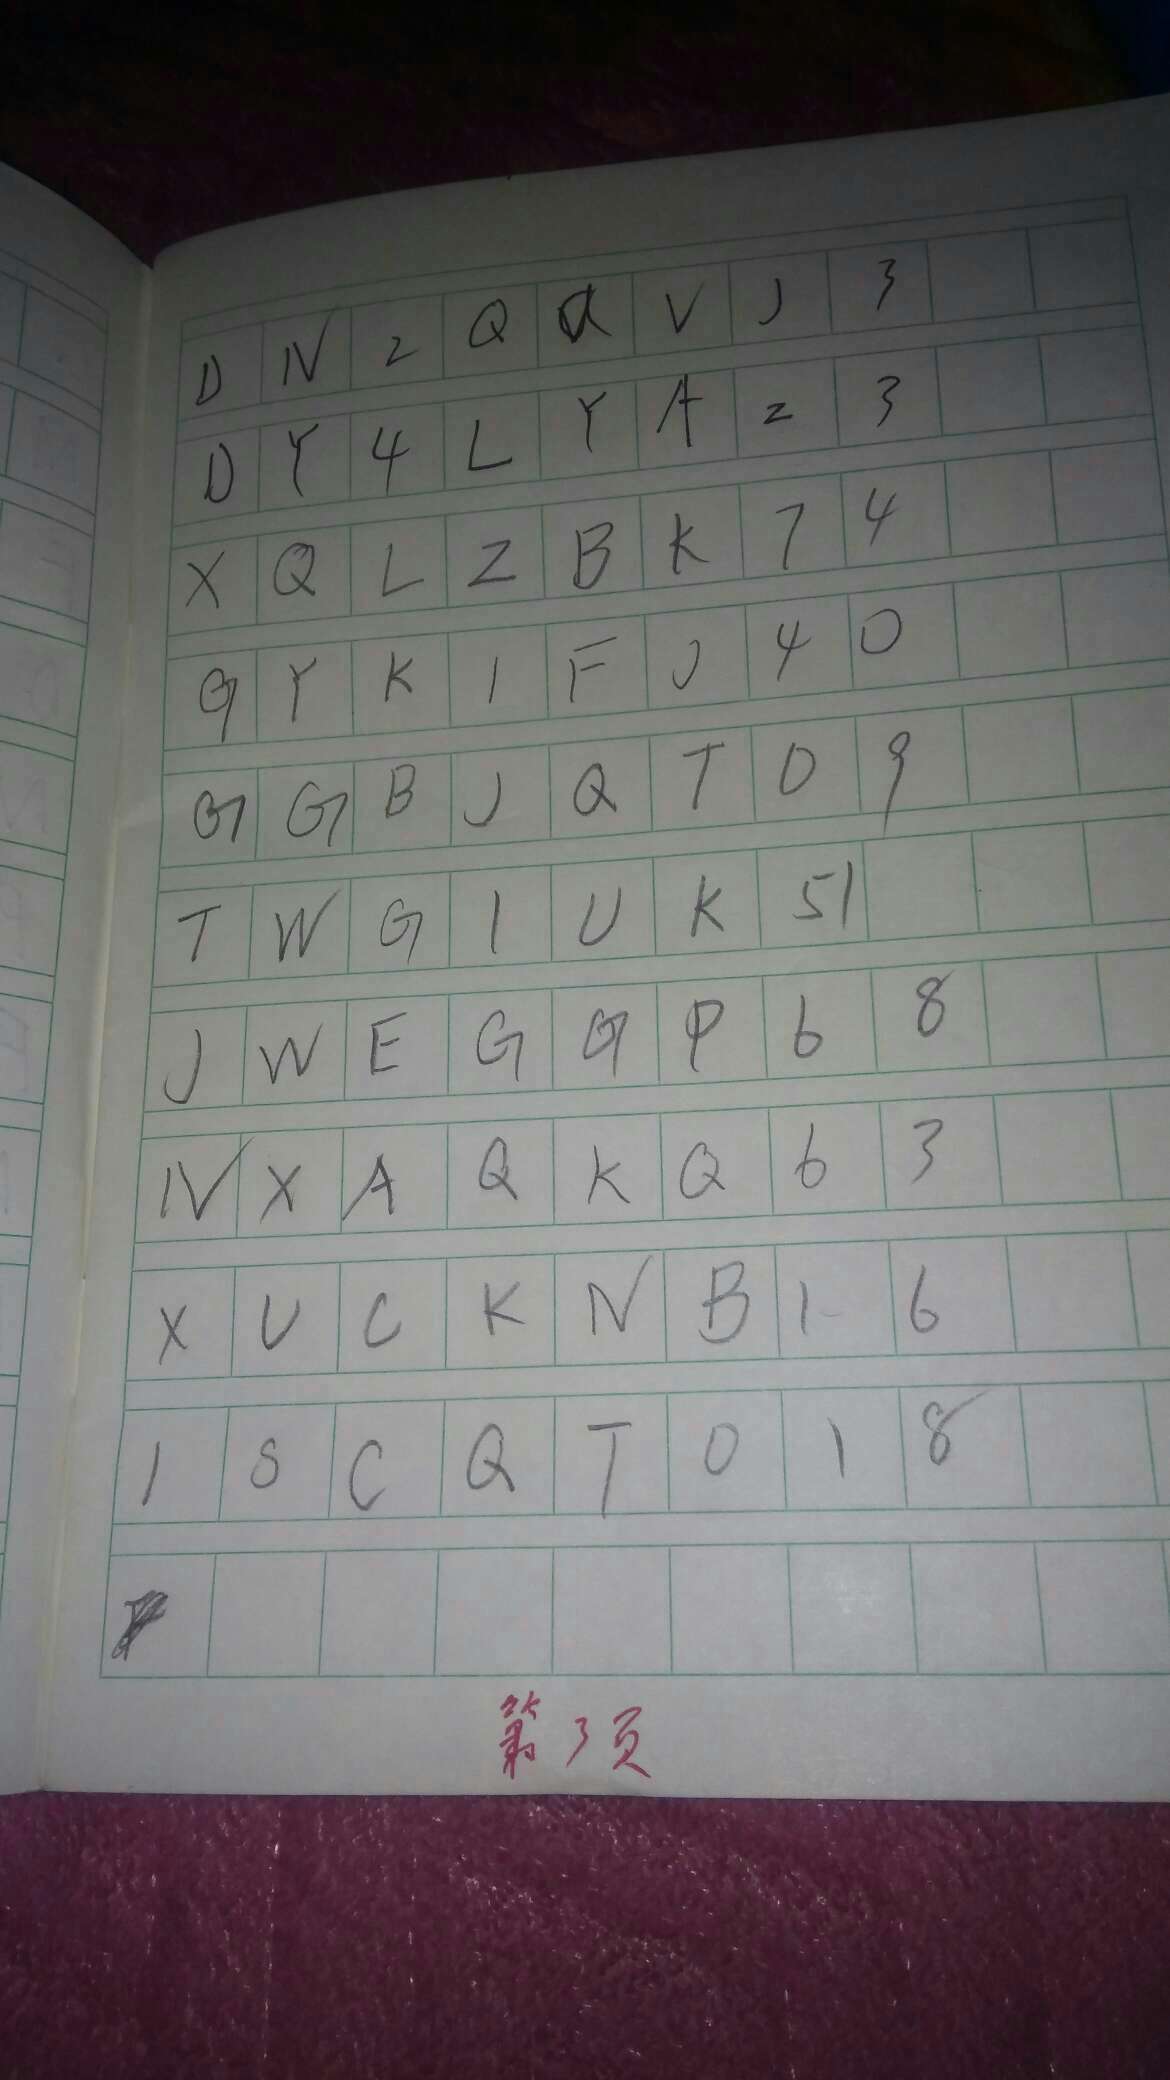 D N 2 Q a V J 3
D Y 4 L Y A 2 3
X Q L Z B K 7 4
G Y K 1 F J 4 0
G G B J Q T 0 9
T W G 1 U K 51
J W E G G P 6 8
N X A Q K Q 6 3
X U C K N B 1 6
1 S C Q T 0 1 8
第3页